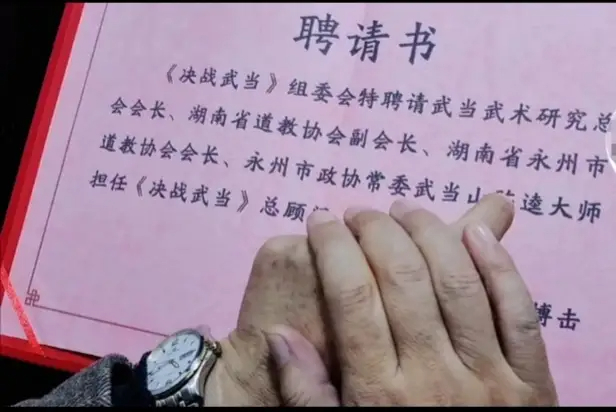 聘请书
《决战武当》组委会特聘请武当武术研究总
会会长、湖南省道教协会副会长、湖南省永州市
道教协会会长、永州市政协常委武当山 逵大师
担任《决战武当》总顾
搏击